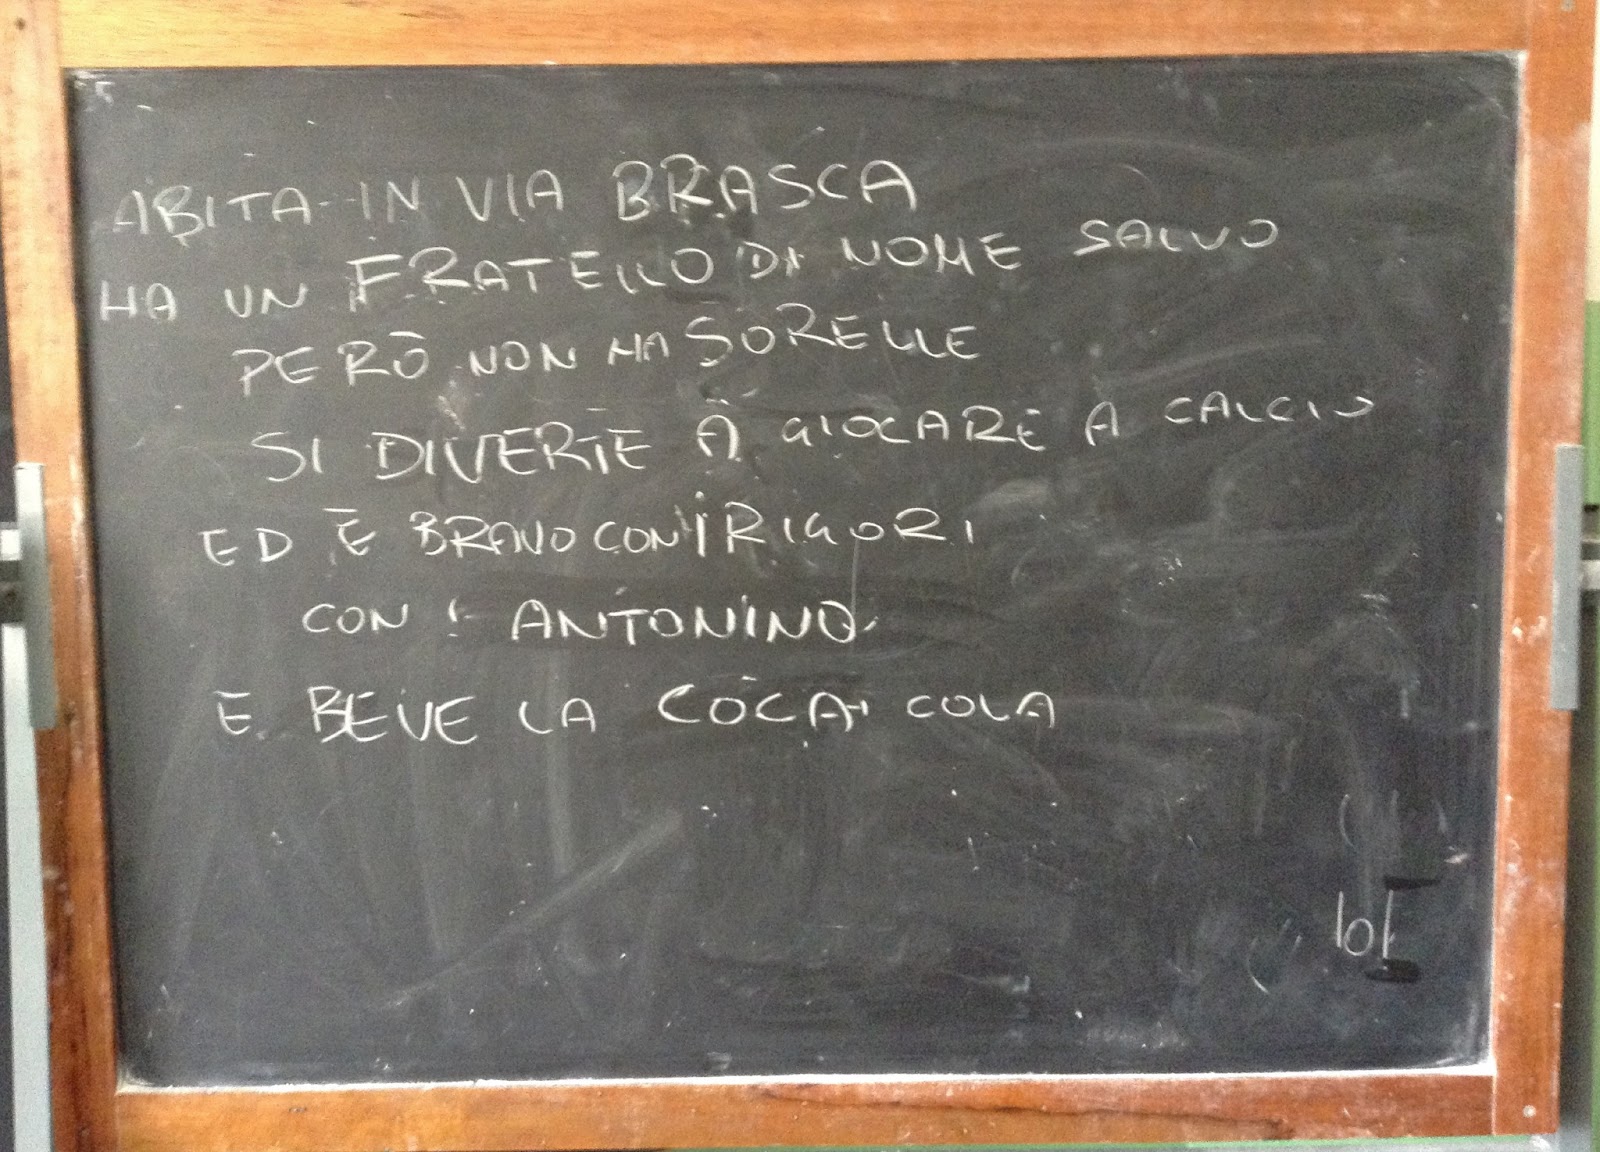 ABITA IN VIA BRASCA
HA UN FRATELLO DI NOME SALVO
PERÒ NON HA SORELLE
SI DIVERTE A GIOCARE A CALCIO
ED È BRAVO CON I RIGORI
CON ANTONINO
E BEVE LA COCA COLA